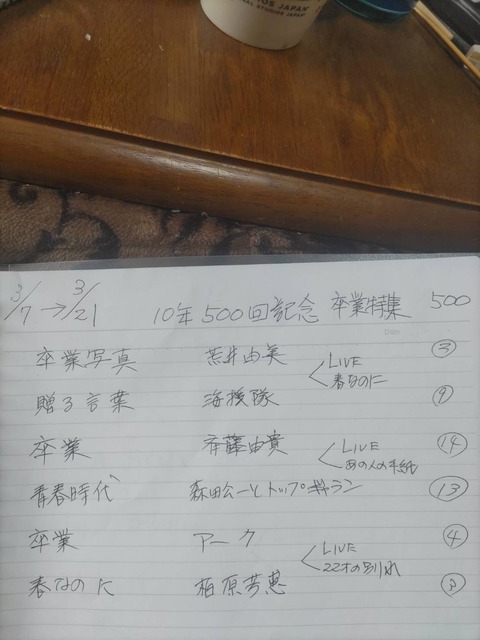 OS JAPAN
STUDIOS JAPAN
3/7→3/21 10年500回記念 卒業特集 500
卒業写真 荒井由美 ③
LIVE
春なのに
贈る言葉 海援隊 ⑨
卒業 斉藤由貴 ⑭
LIVE
あの人の手紙
青春時代 森田公一とトップギャラン ⑬
卒業 アーク ④
LIVE
22才の別れ
春なのに 柏原芳恵